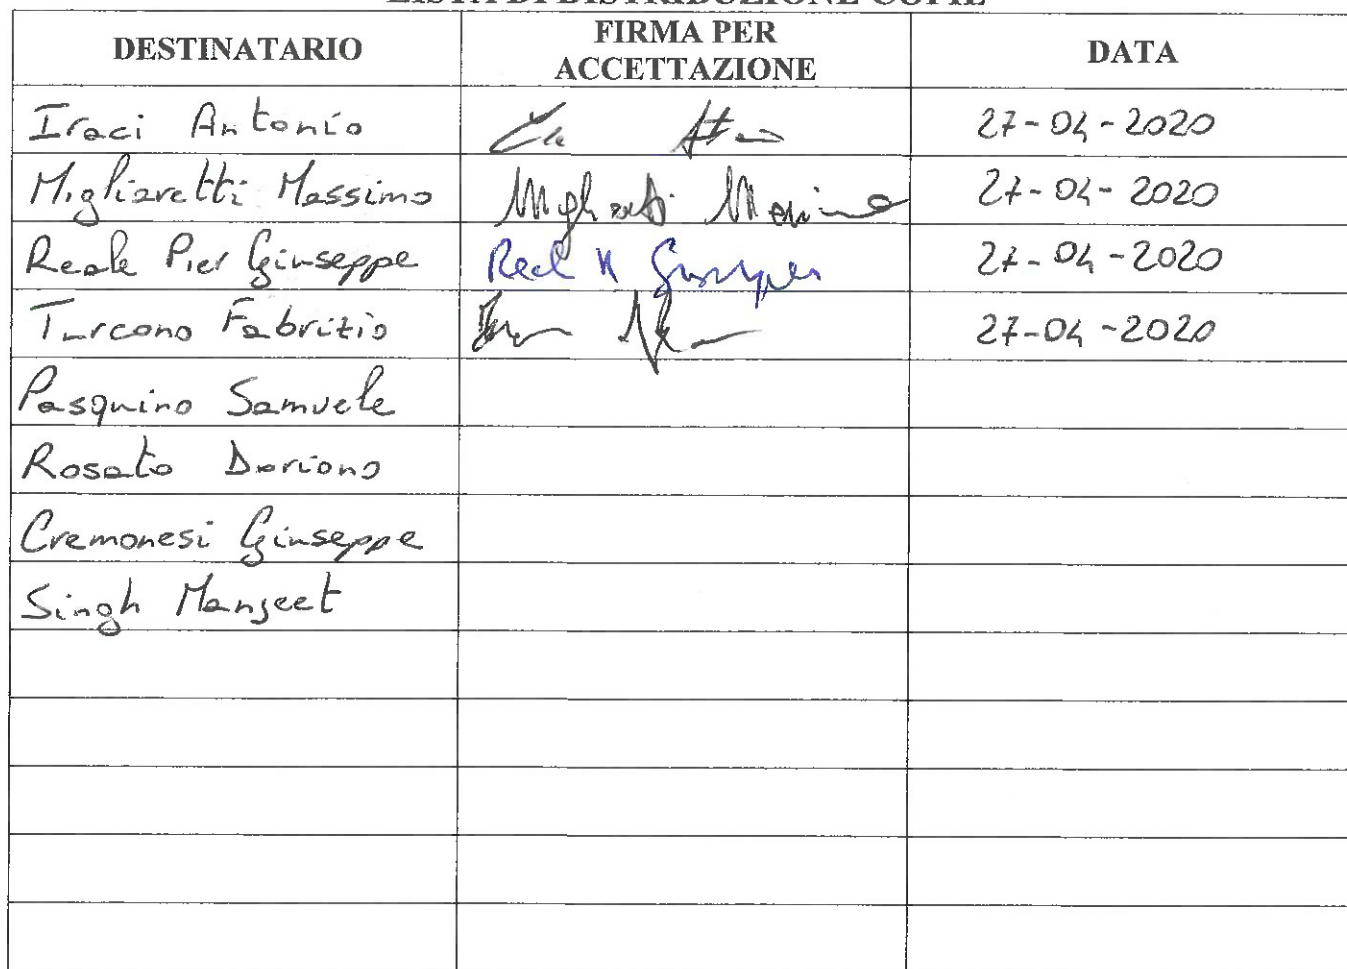 LISTA DI DISTRIBUZIONE COPIE
DESTINATARIO
FIRMA PER
ACCETTAZIONE
DATA
Iraci Antonio 27-04-2020
Migliaretti Massimo 27-04-2020
Reale Pier Giuseppe 27-04-2020
Turcano Fabrizio 27-04-2020
Pasquino Samuele
Rosato Doriano
Cremonesi Giuseppe
Singh Manjeet